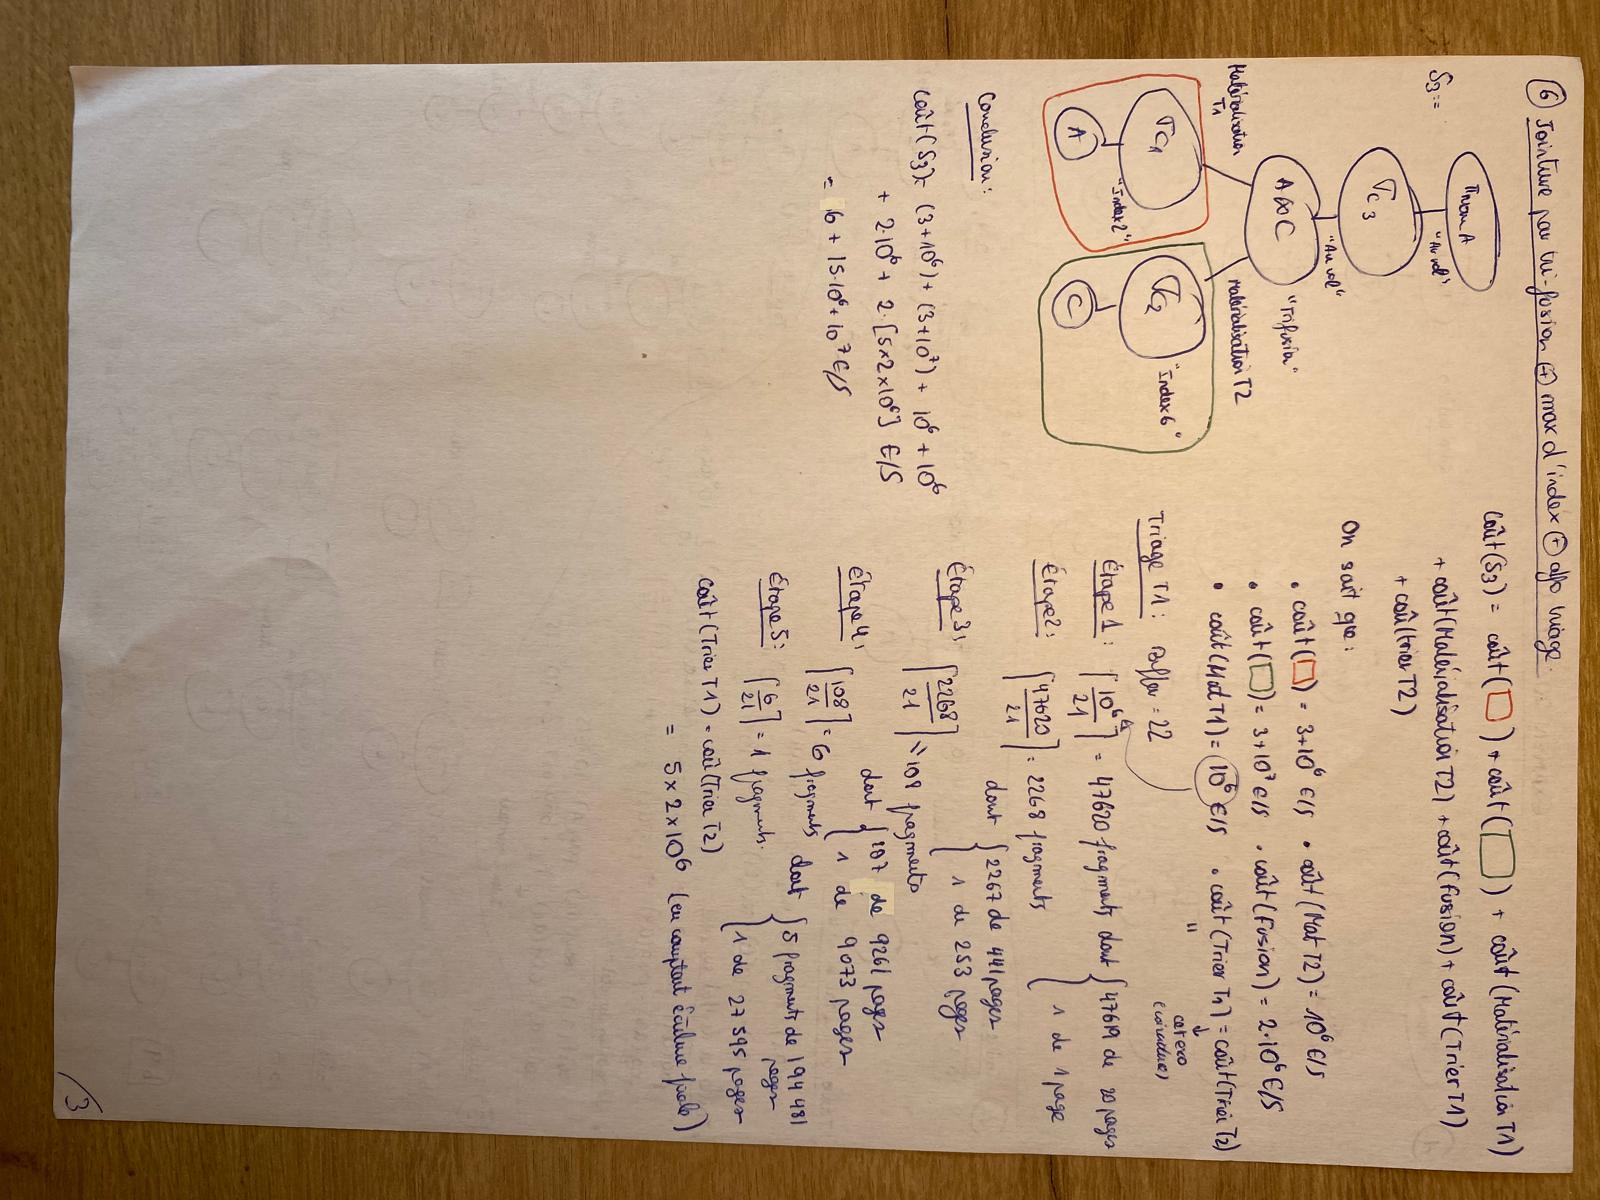 ⑥ Jointure par tri-fusion ⊕ max d'index ⊕ algo triage.
S3:=
Πnom A
"Au vol"
σC3
"Au vol"
A⋈C
"Trifusion"
Matérialisation T1
Matérialisation T2
σC1
"Index2"
A
σC2
"Index6"
C
Conclusion:
Coût(S3)= (3+10⁶) + (3+10⁷) + 10⁶ + 10⁶
+ 2·10⁶ + 2·[5x2x10⁶] E/S
= 6 + 15·10⁶ + 10⁷ E/S
Coût(S3) = coût(□) + coût(□) + coût(Matérialisation T1)
+ coût(Matérialisation T2) + coût(Fusion) + coût(Trier T1)
+ coû(trier T2)
On sait que:
• coût(□) = 3+10⁶ E/S • coût(Mat T2) = 10⁶ E/S
• coût(□) = 3+10⁷ E/S • coût(Fusion) = 2·10⁶ E/S
• coût(Mat T1) = 10⁶ E/S • coût(Trier T1) = coût(Trier T2)
"
↓
cet exo
Triage T1: Buffer = 22
Étape 1: ⌈10⁶/21⌉ = 47620 fragments dont { 47619 de 20 pages
1 de 1 page
Étape2: ⌈47620/21⌉ = 2268 fragments
dont { 2267 de 441 pages
1 de 253 pages
Étape3: ⌈2268/21⌉ = 108 fragments
dont { 107 de 9261 pages
1 de 9073 pages
Étape4: ⌈108/21⌉ = 6 fragments dont { 5 fragments de 194 481 pages
1 de 27 595 pages
Étape5: ⌈6/21⌉ = 1 fragments.
Coût(Trier T1) = coû(Trier T2)
= 5x2x10⁶ (en comptant écriture finale)
/3